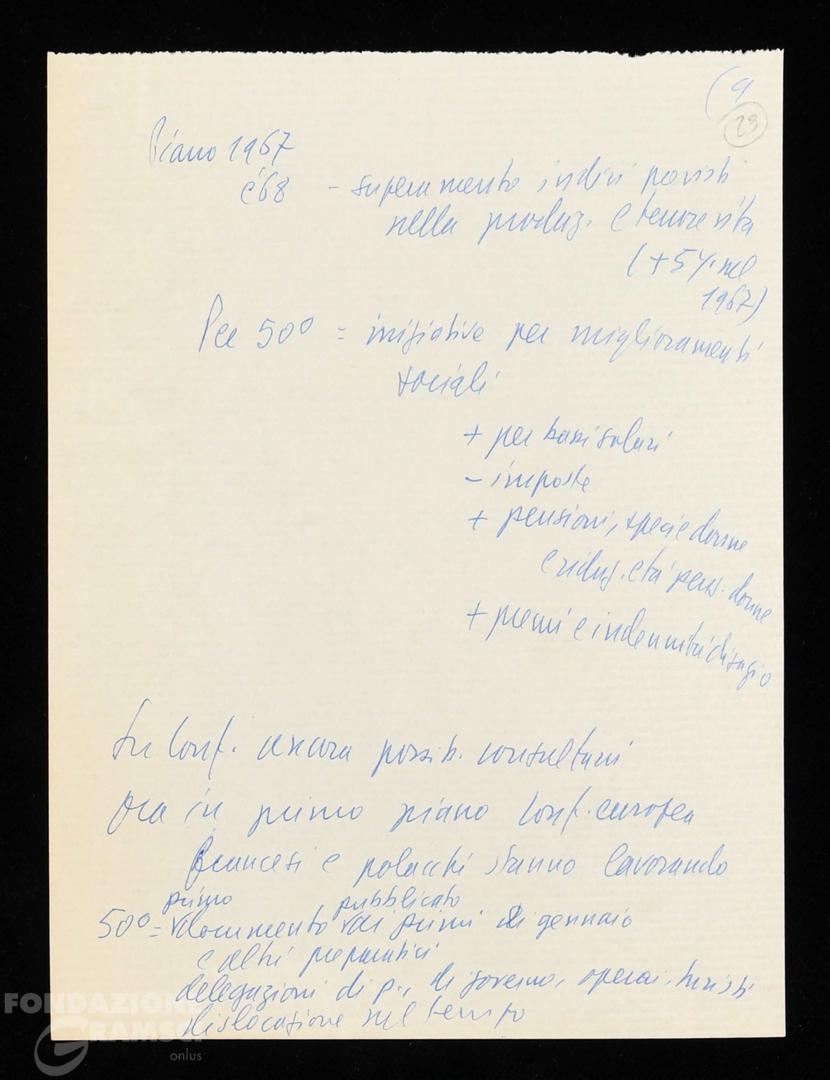 (9
29
Piano 1967
e '68 - superamento indici previsti
nella produz. e tenore vita
(+5% nel
1967)
Per 50° = iniziative per miglioramenti
sociali
+ per bassi salari
- imposte
+ pensioni, specie donne
e riduz. età pens. donne
+ premi e indennità disagio
Su Conf. ancora possib. consultarsi
Ora in primo piano Conf. europea
Francesi e polacchi stanno lavorando
primo pubblicato
50° = documento ai primi di gennaio
e altri preparativi
delegazioni di p., di governo, operai, turisti
dislocazione nel tempo
FONDAZIONE
GRAMSCI
onlus